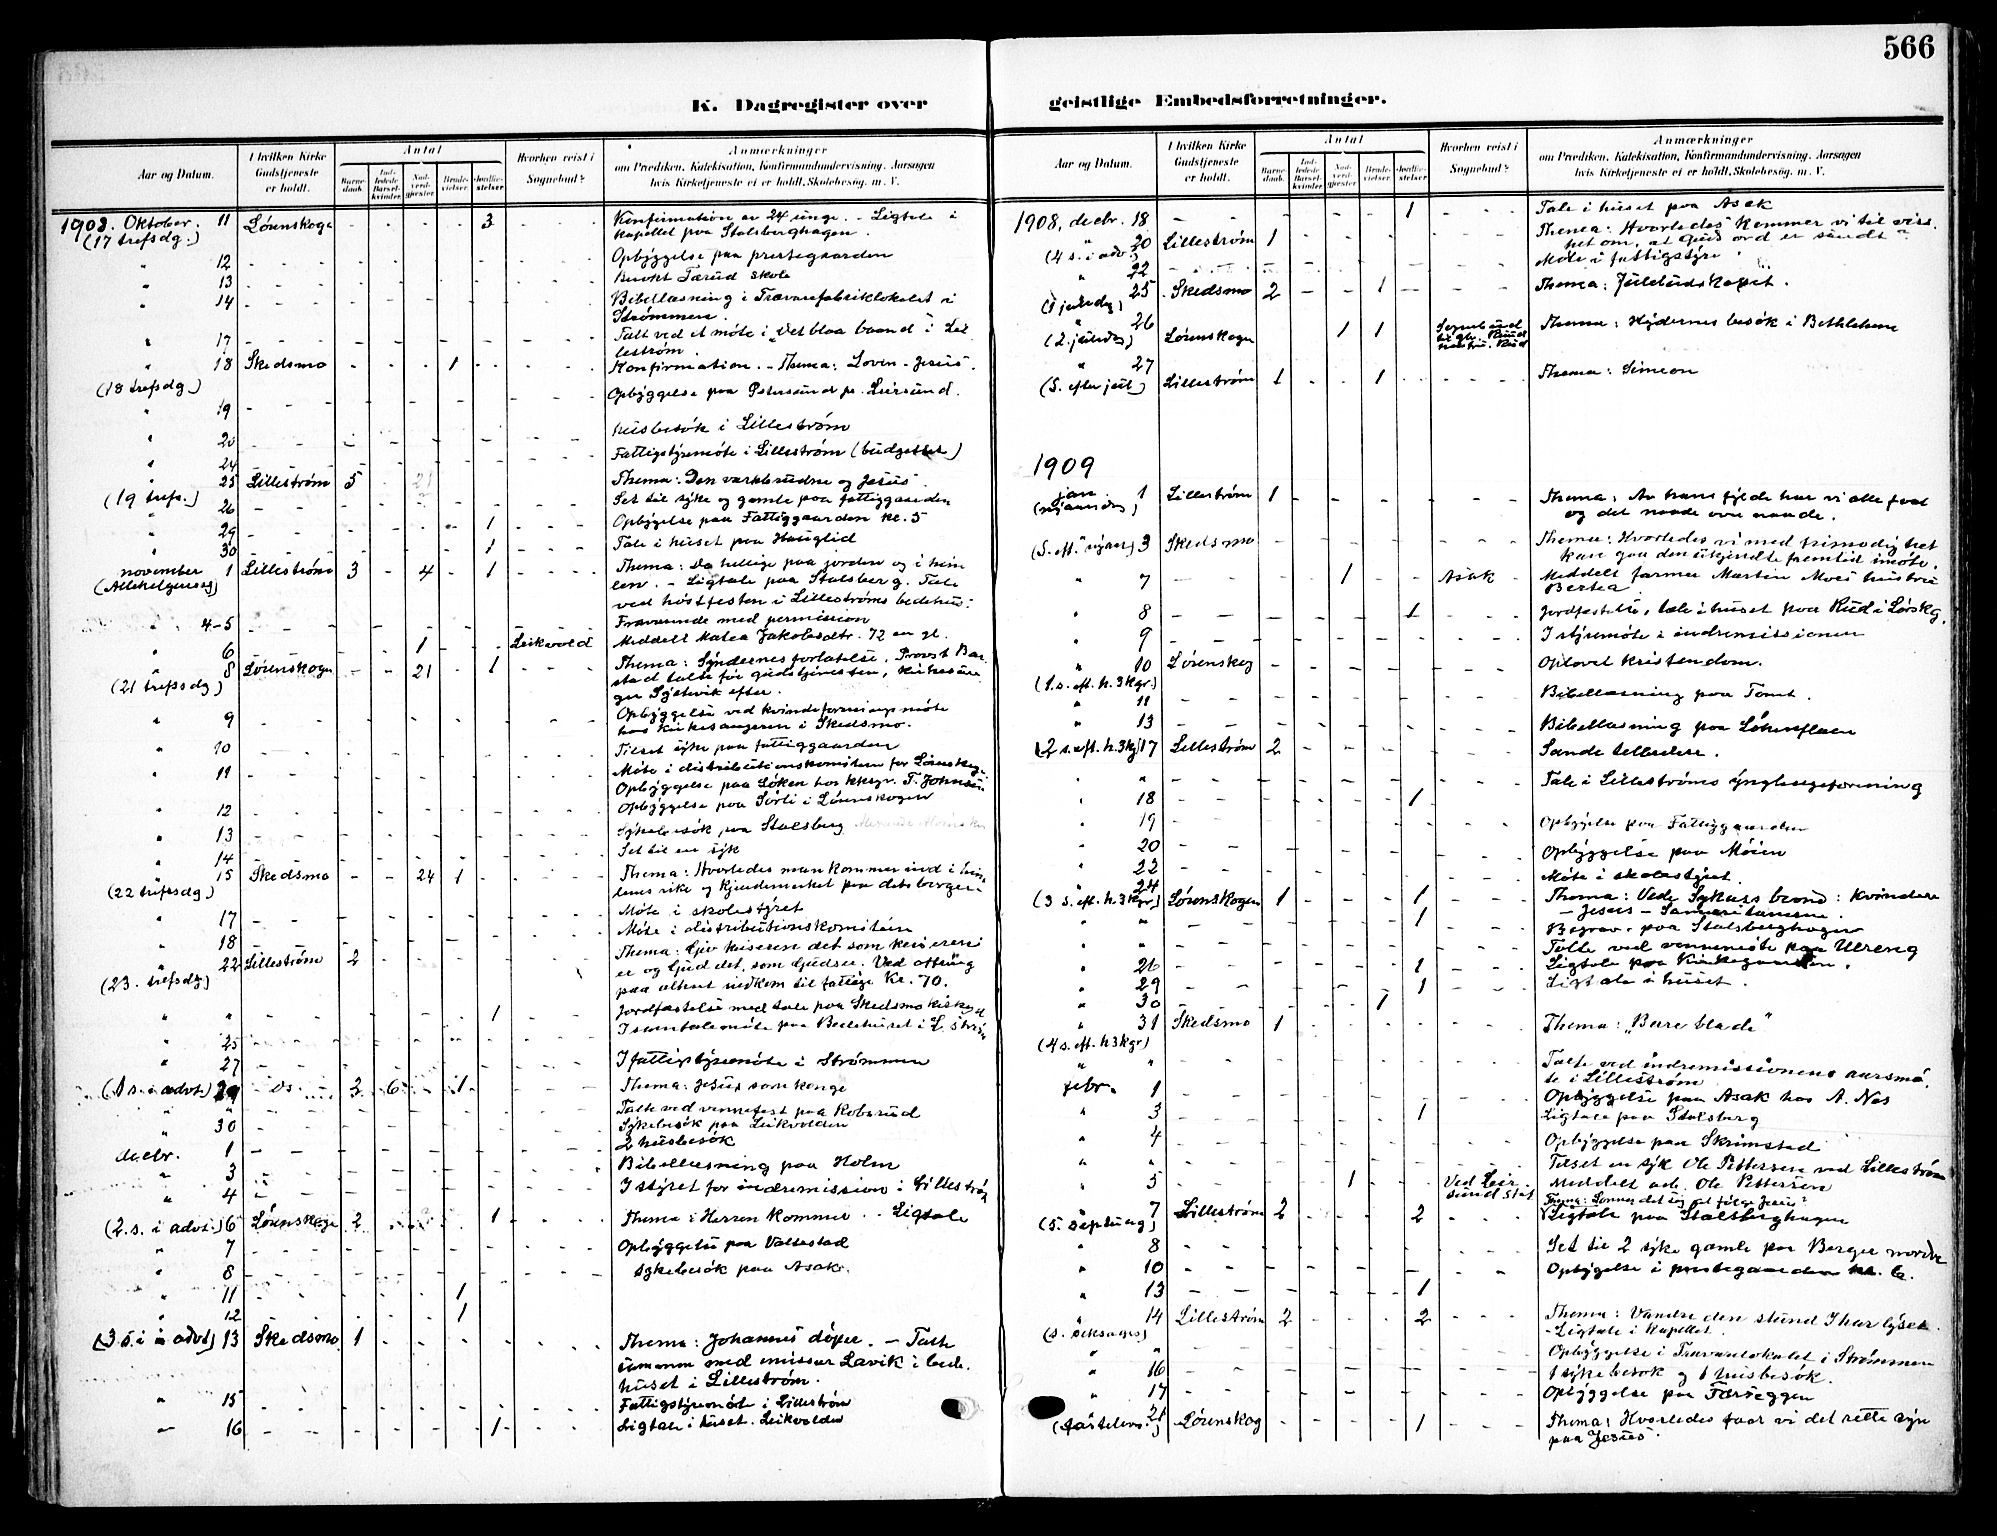 566
K. Dagregister over
geistlige Embedsforretninger.
Aar og Datum.
I hvilken Kirke Gudstjeneste er holdt.
Antal
Barnedaab.
Indledede Barselkvinder.
Nadverdgjester
Brudevielser
Jordfæstelser
Hvorhen reist i Sognebud?
Anmærkninger
om Prædiken, Katekisation, Konfirmandundervisning, Aarsagen
hvis Kirketjeneste ei er holdt, Skolebesøg, m. V.
1908. Oktober. 11 Lørenskog - - - - 3 - - - Konfirmation av 24 unge. - Ligtale i
(17 trefsdg.) kapellet paa Stalsberghagen.
" 12 - - - Opbyggelse paa prestegaarden
" 13 - - - Besøkt Færud skole
" 14 - - - Bibellæsning i Trævarefabriklokalet i
Strømmen.
" 17 - - - Talt ved et møte i "Det blaa baand" i Lil
lestrøm.
" 18 Skedsmo - - - 1 - - - Konfirmation. - Thema: Loven - Jesus.
(18 trefsdg.) Opbyggelse paa Petersund pr. Leirsund.
" 19 - - -
" 20 - - - Husbesøk i Lillestrøm
" 24 - - - Fattigstyremøte i Lillestrøm (budgettet)
" 25 Lillestrøm 5 - 21 Thema: Den værkbrudne og Jesus.
(19 trefs.) Set til syke og gamle paa fattiggaarden
" 26 - - -
" 29 - - - 1 - - - Opbygelse paa Fattiggaarden kl. 5
" 30 - - - 1 - - - Tale i huset paa Hauglid
november 1 Lillestrøm 3 - 4 - 1 - - - Thema: De hellige paa jorden og i him
(Allehelgensdg) len. - Ligtale paa Stalsberg. Tale
ved høstfesten i Lillestrøms bedehus.
" 4-5 - - - Fraværende med permission
" 6 - - 1 - - Leikvold Meddelt Matea Jakobsdtr. 72 aar gl.
" 8 Lørenskogen - - 21 - 1 - - - Thema: Syndernes forlatelse. Provst Bar
(21 trefsdg) stad talte før gudstjenesten, kirkesan
ger Sjetvik efter.
" 9 - - - Opbyggelse ved kvindeforenings møte
hos kirkesangeren i Skedsmo.
" 10 - - - Tilset syke paa fattiggaarden
Møte i distributionskomiteen for Lørenskog.
" 11 - - - Opbyggelse paa Løken hos kksgr. T. Johnsen
Opbyggelse paa Sørli i Lørenskogen
" 12 - - -
" 13 - - - Sykebesøk paa Stalsberg
" 14 - - - Set til en syk
" 15 Skedsmo - - 24 1 - - - Thema: Hvorledes man kommer ind i him
(22 trefsdg) lenes rike og kjendemerket paa dets borgere
" 17 - - - Møte i skolestyret
" 18 - - - Møte i distributionskomiteen
" 22 Lillestrøm 2 - - - Thema: Giv keiseren det som keiserens
(23. trefsdg) er og Gud det, som Guds er. Ved ofring
paa alteret indkom til fattige Kr. 70.
" " - - - 1 - - - Jordfæstelse med tale paa Skedsmo kirkegd
I samtalemøte paa Bedehuset i L.strøm
" 25 - - -
" 27 - - - I fattigstyremøte i Strømmen
(1 s. i advt.) 29 - ds - 3 6 - 1 - - - Thema: Jesus som konge
" " - - - Talte ved vennefest paa Robsrud
" 30 - - - Sykebesøk paa Leikvolden
decbr. 1 - - - 2 husbesøk
" 3 - - - Bibellæsning paa Holm
" 4 - - - I styret for indremission i Lillestrøm
(2. s. i advt.) 6 Lørenskog 2 - - - 1 - - - Thema: Herren kommer. - Ligtale
" 7 - - - Opbyggelse paa Vallestad
" 8 - - - Sykebesøk paa Asak.
" 11 - - - 1
" 12 - - - 1
(3 s. i advt) 13 Skedsmo 1 - - - Thema: Johannes døper. - Talte
sammen med missær Lavik i bede
huset i Lillestrøm.
" 15 - - - Fattigstyremøte i Lillestrøm
" 16 - - - 1 - - - Ligtale i huset. Leikvolden
Aar og Datum.
I hvilken Kirke Gudstjeneste er holdt.
Antal
Barnedaab.
Indledede Barselkvinder.
Nadverdgjester
Brudevielser
Jordfæstelser
Hvorhen reist i Sognebud?
Anmærkninger
om Prædiken, Katekisation, Konfirmandundervisning, Aarsagen
hvis Kirketjeneste ei er holdt, Skolebesøg, m. V.
1908, decbr. 18 - - - 1 - - - Tale i huset paa Asak
" 20 Lillestrøm 1 - - - Thema: Hvorledes kommer vi til viss
(4 s. i adv.) het om, at Guds ord er sandt?
" 22 - - - Møte i fattigstyre.
" 25 Skedsmo 2 - - 1 - - - Thema: Julebudskapet.
(1 juledg)
" 26 Lørenskogen 1 1 Sognebud Thema: Hyrdernes besøk i Bethlehem
(2. juledg) Rud
" 27
(S. efter jul) Lillestrøm 1 - - 1 - - - Thema: Simeon
1909
jan. 1 Lillestrøm 1 - - - Thema: Av hans fylde har vi alle faat
(nyaarsdg) og det naade over naade.
(S. eft. nyaar) 3 Skedsmo - - - Thema: Hvorledes vi med frimodighet
kan gaa den ukjendte fremtid imøte.
" 7 - - 1 - - Asak - Meddelt farmer Martin Moes hustru
Bertea
" 8 - - - 1 - - - Jordfæstelse, tale i huset paa Rud i Lørskg.
" 9 - - - I styremøte i indremissionen
" 10 Lørenskog - - - Oplovet kristendom.
(1. s. eft. h. 3 kgr.)
" 11 - - - Bibellæsning paa Tomt.
" 13 - - - Bibellæsning paa Løkensflaen
(2 s. eft. h. 3 kg) 17 Lillestrøm 2 - - - Sande tilbedere.
" " - - - Tale i Lillestrøms ynglingeforening
" 18 - - - 1
" 19 - - - Opbygelse paa Fattiggaarden
" 20 - - - Opbyggelse paa Moien
" 22 - - - Møte i skolestyret.
" 24 Lørenskogen 1 - - - 1 - - - Thema: Ved Sykars brønd: Kvinden
(3 s. eft. h. 3 kgr.) - Jesus - Samaritanerne.
" " - - - 1 - - - Begrav. paa Stalsberghagen
" " - - - Talte ved vennemøte paa Ulreng
" 26 - - - 1 - - - Ligtale paa Kirkegaarden.
" 29 - - - 1 - - - Ligtale i huset.
" 30 - - - 1
" 31 Skedsmo 1 - - - Thema: "Bare blade"
(4 s. eft. h 3 kgr)
" " - - - Talte ved indremissionens aarsmø
te i Lillestrøm
febr. 1 - - - Opbyggelse paa Asak hos A. Næs
" 3 - - - 1 - - - Ligtale paa Stalsberg
" 4 - - - Opbyggelse paa Skrimstad
" " - - - Tilset en syk Ole Pettersen ved Lillestrøm
" 5 - - 1 - - Ved Leirsund st Meddelt arb. Ole Pettersen
" 7 Lillestrøm 2 - - - 2 - - - Thema: Lønner det sig at følge Jesus?
(S. septuag) Ligtale paa Stalsberghagen
" 8 - - - Set til 2 syke gamle paa Berger nordre
" 10 - - - Opbygelse i prestegaarden kl. 6.
" 13 - - - 1
" 14 Lillestrøm 2 - - - 2 - - - Thema: Vandre den stund I har lyset.
(s. seksages) - Ligtale i kapellet.
" " - - - Opbyggelse i Trævarelokalet i Strømmen
" 16 - - - 1 sykebesøk og 1 husbesøk.
" 17 - - - Opbyggelse paa Færseggen
" 21 Lørenskog - - - 1 - - - Thema: Hvorledes faar vi det rette syn
(fastelavn) paa Jesus.